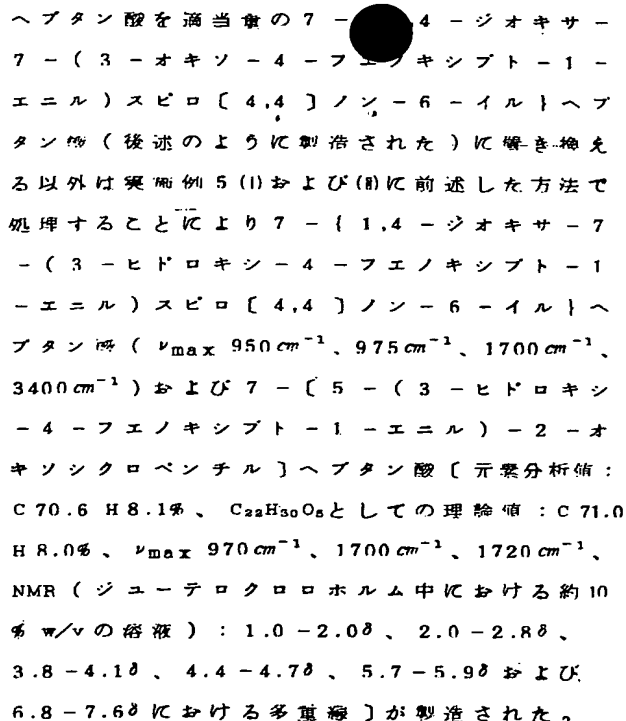 ヘプタン酸を適当量の7- 4-ジオキサ-
7-(3-オキソ-4-フェノキシブト-1-
エニル)スピロ〔4,4〕ノン-6-イル}ヘプ
タン酸(後述のように製造された)に置き換え
る以外は実施例5(I)および(II)に前述した方法で
処理することにより7-{1,4-ジオキサ-7
-(3-ヒドロキシ-4-フエノキシブト-1
-エニル)スピロ〔4,4〕ノン-6-イル}ヘ
プタン酸(νmax 950cm⁻¹、975cm⁻¹、1700cm⁻¹、
3400cm⁻¹)および7-〔5-(3-ヒドロキシ
-4-フエノキシブト-1-エニル)-2-オ
キソシクロペンチル〕ヘプタン酸〔元素分析値:
C 70.6 H 8.1%、C₂₂H₃₀O₅としての理論値:C 71.0
H 8.0%、νmax 970cm⁻¹、1700cm⁻¹、1720cm⁻¹、
NMR(ジューテロクロロホルム中における約10
% w/vの溶液):1.0-2.0δ、2.0-2.8δ、
3.8-4.1δ、4.4-4.7δ、5.7-5.9δおよび
6.8-7.6δにおける多重線〕が製造された。